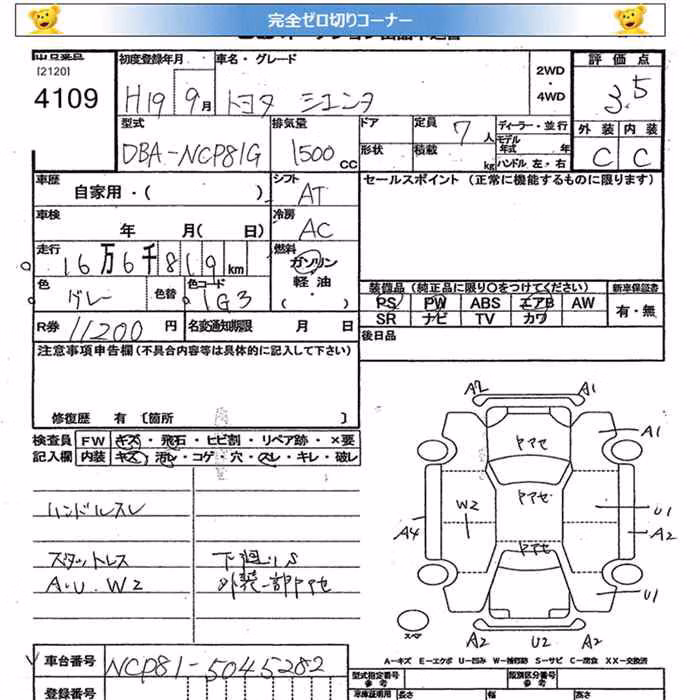 完全ゼロ切りコーナー
出品番号
[2120]
4109
初度登録年月
H19 9月
車名・グレード
トヨタ シエンタ
2WD
・
4WD
評価点
3.5
外装 内装
C C
型式
DBA-NCP81G
排気量
1500cc
ドア
形状
定員 7人
積載 kg
ディーラー・並行
モデル年式 年
ハンドル 左・右
車歴
自家用・( )
シフト
AT
セールスポイント (正常に機能するものに限ります)
車検
年 月( 日)
冷房
AC
走行
16万6千819km
燃料
ガソリン
軽油
( ・ )
色
グレー
色替
色コード
1G3
装備品 (純正品に限り○をつけてください)
PS PW ABS エアB AW
SR ナビ TV カワ
新車保証書
有・無
R券 11200円
名変通知期限 月 日
後日品
注意事項申告欄 (不具合内容等は具体的に記入して下さい)
修復歴 有 [箇所 ]
検査員 FW キズ・飛石・ヒビ割・リペア跡・×要
記入欄 内装 キズ・汚レ・コゲ・穴・スレ・キレ・破レ
ハンドルスレ
スタットレス 下廻りS
A・U・W2 外装一部ヤケアセ
A2 A1
ヤケアセ A1
ヤケアセ
W2 U1
A4 A2
ヤケアセ
U1
A2 U2 A2
スペア
A-キズ E-エクボ U-凹み W-補修跡 S-サビ C-腐食 XX-交換済
車台番号 NCP81-5045282
登録番号
型式指定番号
参考
類別区分番号
参考
車庫証明用 長さ 幅 高さ